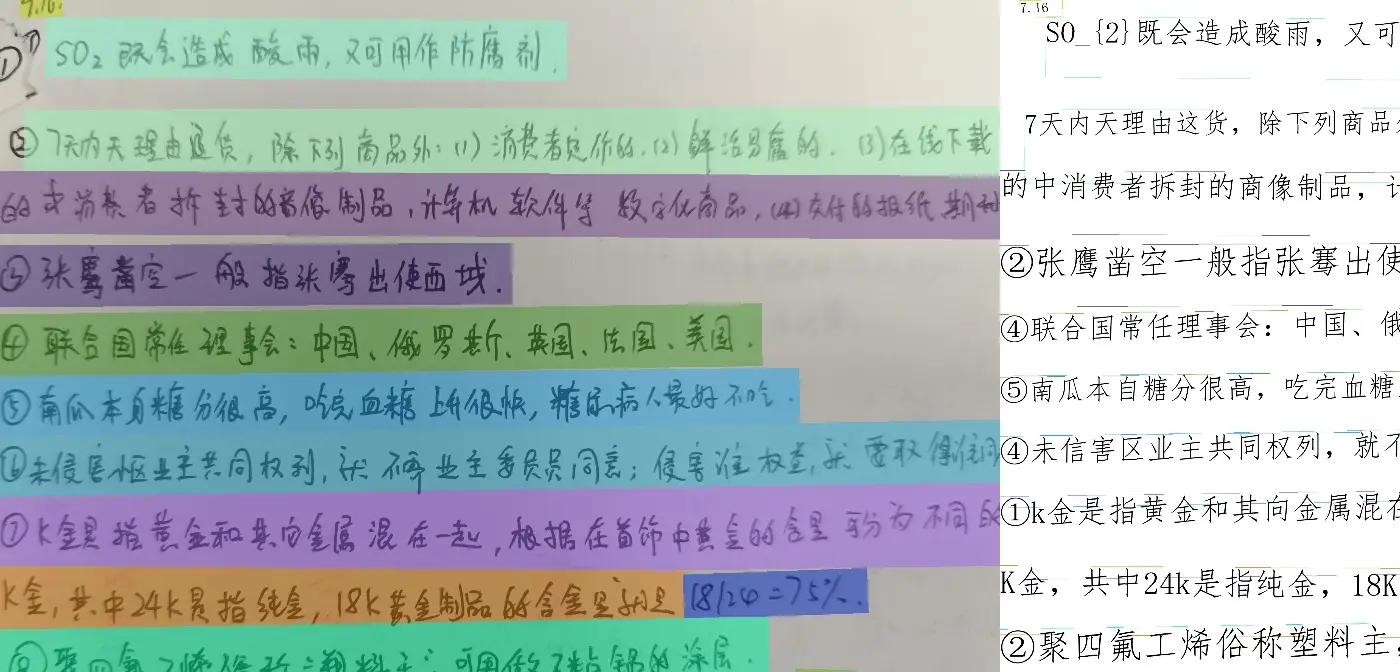 7.16.
① SO₂ 既会造成酸雨,又可用作防腐剂.
② 7天内天理由退货,除下列商品外:(1)消费者定作的.(2)鲜活易腐的.(3)在线下载
的或消费者拆封的音像制品,计算机软件等数字化商品,(4)交付的报纸期刊
③张骞凿空一般指张骞出使西域.
④联合国常任理事会:中国、俄罗斯、英国、法国、美国.
⑤南瓜本身糖分很高,吃完血糖上升很快,糖尿病人最好不吃.
⑥未侵害小区业主共同权利,就不需业主委员同意;侵害谁权益,就要取得谁同
⑦K金是指黄金和其向金属混在一起,根据在首饰中黄金的含量可分为不同的
K金,其中24K是指纯金,18K黄金制品的含金量就是 18/24=75%.
⑧聚四氟乙烯俗称塑料王:可用做不粘锅的涂层.
7.16
SO_{2}既会造成酸雨,又可
7天内天理由这货,除下列商品
的中消费者拆封的商像制品,
②张鹰凿空一般指张骞出使
④联合国常任理事会:中国、俄
⑤南瓜本自糖分很高,吃完血糖
④未信害区业主共同权列,就不
①k金是指黄金和其向金属混在
K金,共中24k是指纯金,18K
②聚四氟工烯俗称塑料主